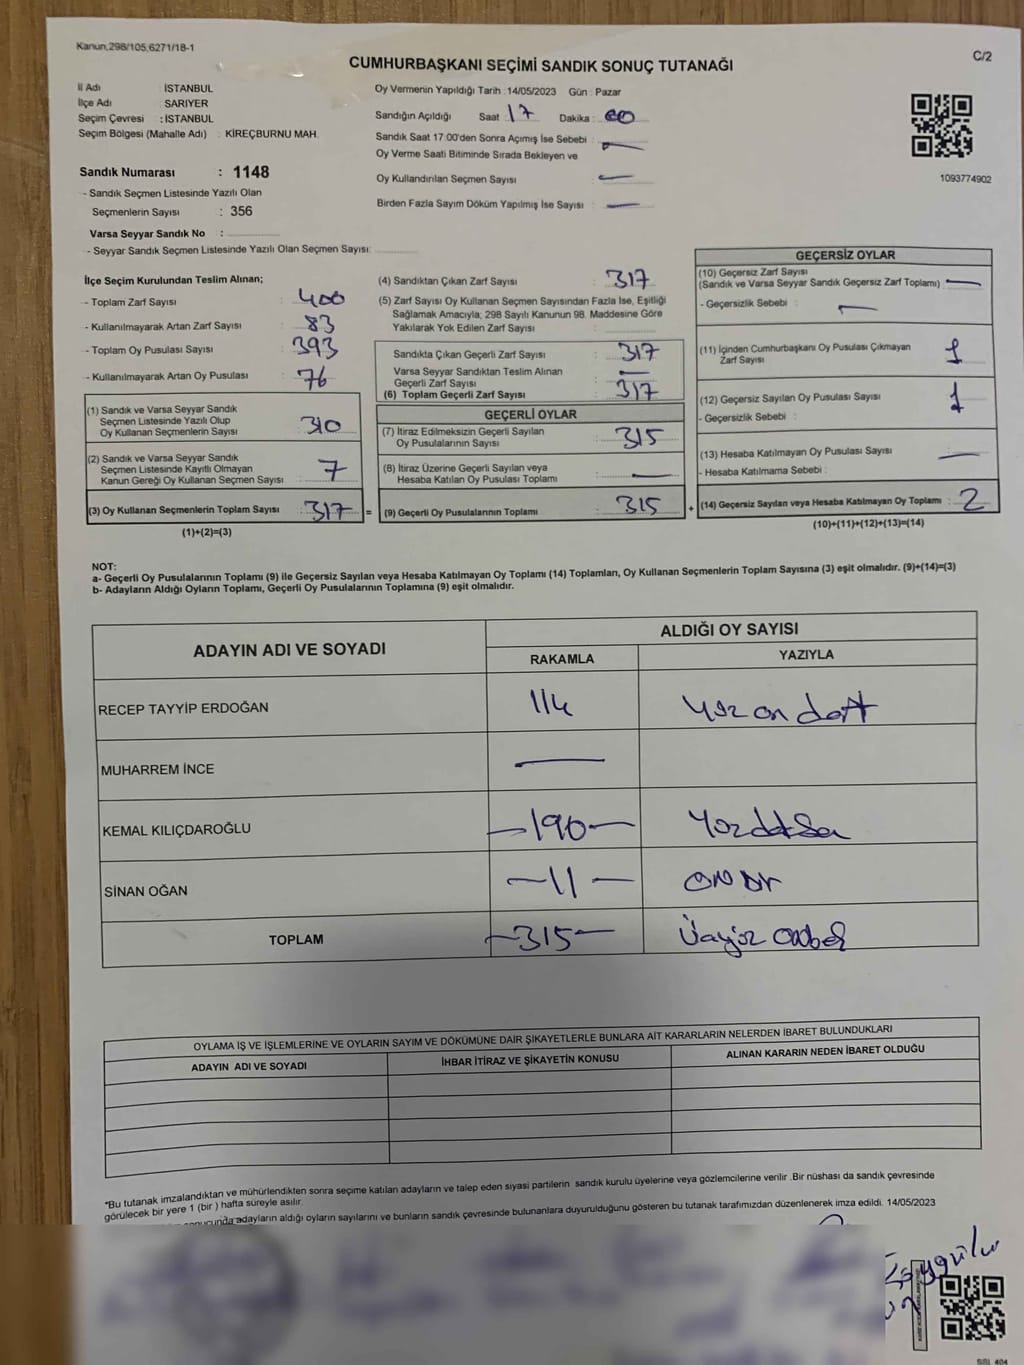 Kanun,298/105,6271/18-1
C/2
CUMHURBAŞKANI SEÇİMİ SANDIK SONUÇ TUTANAĞI
İl Adı : İSTANBUL
İlçe Adı : SARIYER
Seçim Çevresi : İSTANBUL
Seçim Bölgesi (Mahalle Adı) : KİREÇBURNU MAH.
Sandık Numarası : 1148
- Sandık Seçmen Listesinde Yazılı Olan
Seçmenlerin Sayısı : 356
Varsa Seyyar Sandık No :
- Seyyar Sandık Seçmen Listesinde Yazılı Olan Seçmen Sayısı:
Oy Vermenin Yapıldığı Tarih : 14/05/2023 Gün : Pazar
Sandığın Açıldığı Saat : 17 Dakika : 00
Sandık Saat 17:00'den Sonra Açımış İse Sebebi : —
Oy Verme Saati Bitiminde Sırada Bekleyen ve
Oy Kullandırılan Seçmen Sayısı : —
Birden Fazla Sayım Döküm Yapılmış İse Sayısı : —
1093774902
İlçe Seçim Kurulundan Teslim Alınan;
- Toplam Zarf Sayısı : 400
- Kullanılmayarak Artan Zarf Sayısı : 83
- Toplam Oy Pusulası Sayısı : 393
- Kullanılmayarak Artan Oy Pusulası : 76
(1) Sandık ve Varsa Seyyar Sandık
Seçmen Listesinde Yazılı Olup
Oy Kullanan Seçmenlerin Sayısı : 310
(2) Sandık ve Varsa Seyyar Sandık
Seçmen Listesinde Kayıtlı Olmayan
Kanun Gereği Oy Kullanan Seçmen Sayısı : 7
(3) Oy Kullanan Seçmenlerin Toplam Sayısı : 317 =
(1)+(2)=(3)
(4) Sandıktan Çıkan Zarf Sayısı : 317
(5) Zarf Sayısı Oy Kullanan Seçmen Sayısından Fazla İse, Eşitliği
Sağlamak Amacıyla; 298 Sayılı Kanunun 98. Maddesine Göre
Yakılarak Yok Edilen Zarf Sayısı :
Sandıkta Çıkan Geçerli Zarf Sayısı : 317
Varsa Seyyar Sandıktan Teslim Alınan
Geçerli Zarf Sayısı : —
(6) Toplam Geçerli Zarf Sayısı : 317
GEÇERLİ OYLAR
(7) İtiraz Edilmeksizin Geçerli Sayılan
Oy Pusulalarının Sayısı : 315
(8) İtiraz Üzerine Geçerli Sayılan veya
Hesaba Katılan Oy Pusulası Toplamı : —
(9) Geçerli Oy Pusulalarının Toplamı : 315 +
GEÇERSİZ OYLAR
(10) Geçersiz Zarf Sayısı
(Sandık ve Varsa Seyyar Sandık Geçersiz Zarf Toplamı) : —
- Geçersizlik Sebebi : —
(11) İçinden Cumhurbaşkanı Oy Pusulası Çıkmayan
Zarf Sayısı : 1
(12) Geçersiz Sayılan Oy Pusulası Sayısı : 1
- Geçersizlik Sebebi :
(13) Hesaba Katılmayan Oy Pusulası Sayısı : —
- Hesaba Katılmama Sebebi :
(14) Geçersiz Sayılan veya Hesaba Katılmayan Oy Toplamı : 2
(10)+(11)+(12)+(13)=(14)
NOT:
a- Geçerli Oy Pusulalarının Toplamı (9) ile Geçersiz Sayılan veya Hesaba Katılmayan Oy Toplamı (14) Toplamları, Oy Kullanan Seçmenlerin Toplam Sayısına (3) eşit olmalıdır. (9)+(14)=(3)
b- Adayların Aldığı Oyların Toplamı, Geçerli Oy Pusulalarının Toplamına (9) eşit olmalıdır.
ADAYIN ADI VE SOYADI
ALDIĞI OY SAYISI
RAKAMLA YAZIYLA
RECEP TAYYİP ERDOĞAN 114 yüz on dört
MUHARREM İNCE —
KEMAL KILIÇDAROĞLU —190— Yüz doksan
SİNAN OĞAN —11— on bir
TOPLAM —315— Üçyüz onbeş
OYLAMA İŞ VE İŞLEMLERİNE VE OYLARIN SAYIM VE DÖKÜMÜNE DAİR ŞİKAYETLERLE BUNLARA AİT KARARLARIN NELERDEN İBARET BULUNDUKLARI
ADAYIN ADI VE SOYADI İHBAR İTİRAZ VE ŞİKAYETİN KONUSU ALINAN KARARIN NEDEN İBARET OLDUĞU
*Bu tutanak imzalandıktan ve mühürlendikten sonra seçime katılan adayların ve talep eden siyasi partilerin sandık kurulu üyelerine veya gözlemcilerine verilir .Bir nüshası da sandık çevresinde
görülecek bir yere 1 (bir ) hafta süreyle asılır.
adayların aldığı oyların sayılarını ve bunların sandık çevresinde bulunanlara duyurulduğunu gösteren bu tutanak tarafımızdan düzenlenerek imza edildi. 14/05/2023